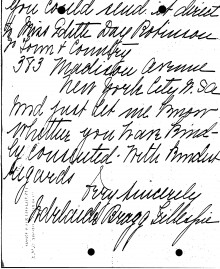 You could send it direct
to Miss Edith Day Robinson
℅ Town & Country
383 Madison Avenue
New York City U.S.A
And just let me know
Whether you have kind
ly consented. With kindest
regards
Very sincerely
Adelaide Bragg Gillespie